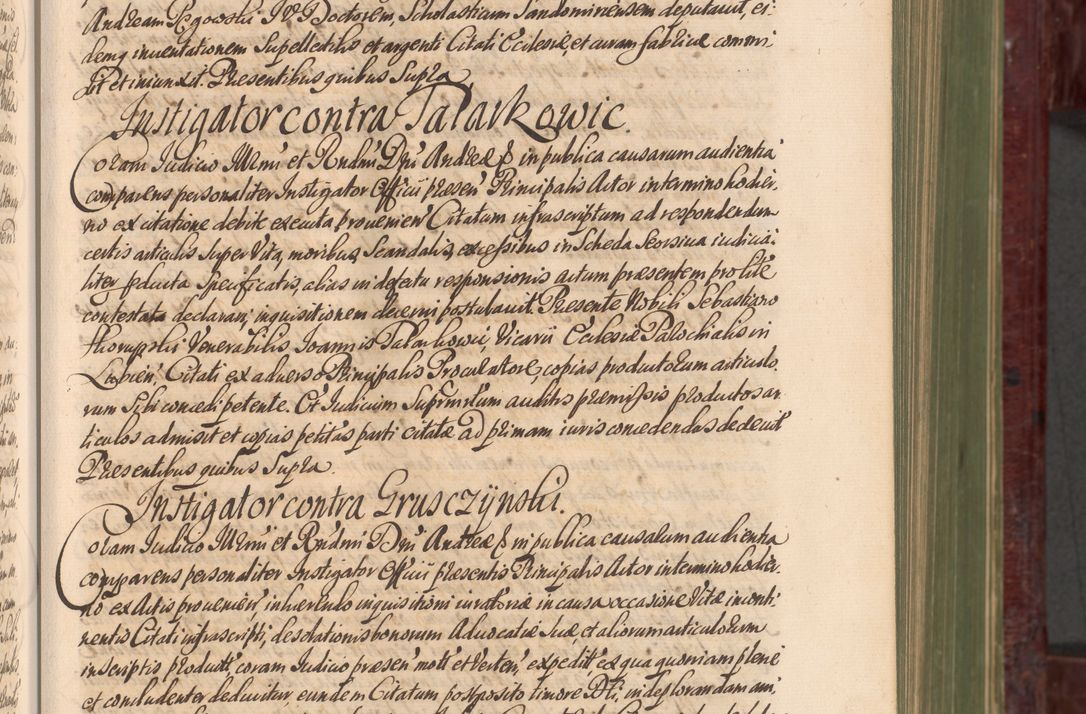 Andream Pęgowski I. V. Doctorem Scholasticum Sandomiriensem deputavit, ei
demq inventationem Supellectilis et argenti Citati Ecclesiæ, et curam fabricæ commi
sit et iniunxit. Præsentibus quibus Supra.
Instigator contra Palarkowic.
Coram Iudicio Illrmi et Rndmi Dni Andreæ P in publica causarum audientia
comparens personaliter Instigator Officii præsen Principalis Actor in termino hodier.
no ex citatione debite executa provenien Citatum infrascriptum ad respondendum
certis articulis super Vita, moribus, Scandalis, excessibus in Scheda Seorsiva iudicia
liter producta Specificatis, alias in defectu responsionis actum præsentem pro lite
contestata declarari, inquisitionem decerni postulavit. Præsente Nobili Sebastiano
Venerabilis Ioannis Palarkowic, Vicarii Ecclesiæ Parochialis in
Lubien Citati ex adverso Principalis Procuratore, copias productorum articulo.
rum Sibi concedi petente. Et Iudicium Suprmdictum auditis præmissis productos ar
ticulos admisit et copias petitas parti citatæ ad primam iuris concedendas decrevit
Præsentibus quibus Supra.
Instigator contra Grusczÿnski.
Coram Iudicio Illrmi et Rndmi Dni Andreæ P in publica causarum audientia
comparens personaliter Instigator Officii præsentis Principalis Actor in termino hodier.
no ex Actis provenien inhærendo inquisitioni iuratoriæ in causa occasione Vitæ inconti
nentis Citati infrascripti, desolationis bonorum Advocatiæ Suæ, et aliorum articulorum
in scriptis product, coram Iudicio præsen mot et verten, expedit ex qua quoniam plene
et concludenter deducitur, eundem Citatum postposito timore Dei, in deplorandam ani,